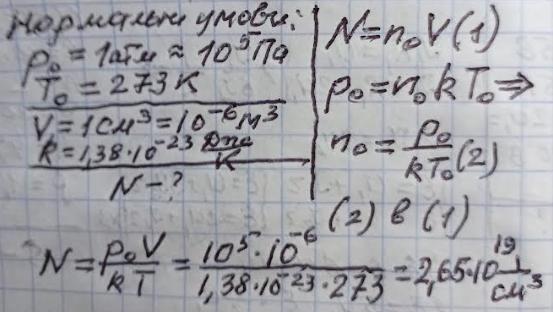 нормальні умови:
p₀ = 1атм ≈ 10⁵ Па
T₀ = 273 K
V = 1 см³ = 10⁻⁶ м³
k = 1,38·10⁻²³ Дж/K
N - ?
N = n₀V (1)
p₀ = n₀kT₀ ⇒
n₀ = p₀/kT₀ (2)
(2) в (1)
N = p₀V/kT = 10⁵·10⁻⁶/1,38·10⁻²³·273 = 2,65·10¹⁹ 1/см³